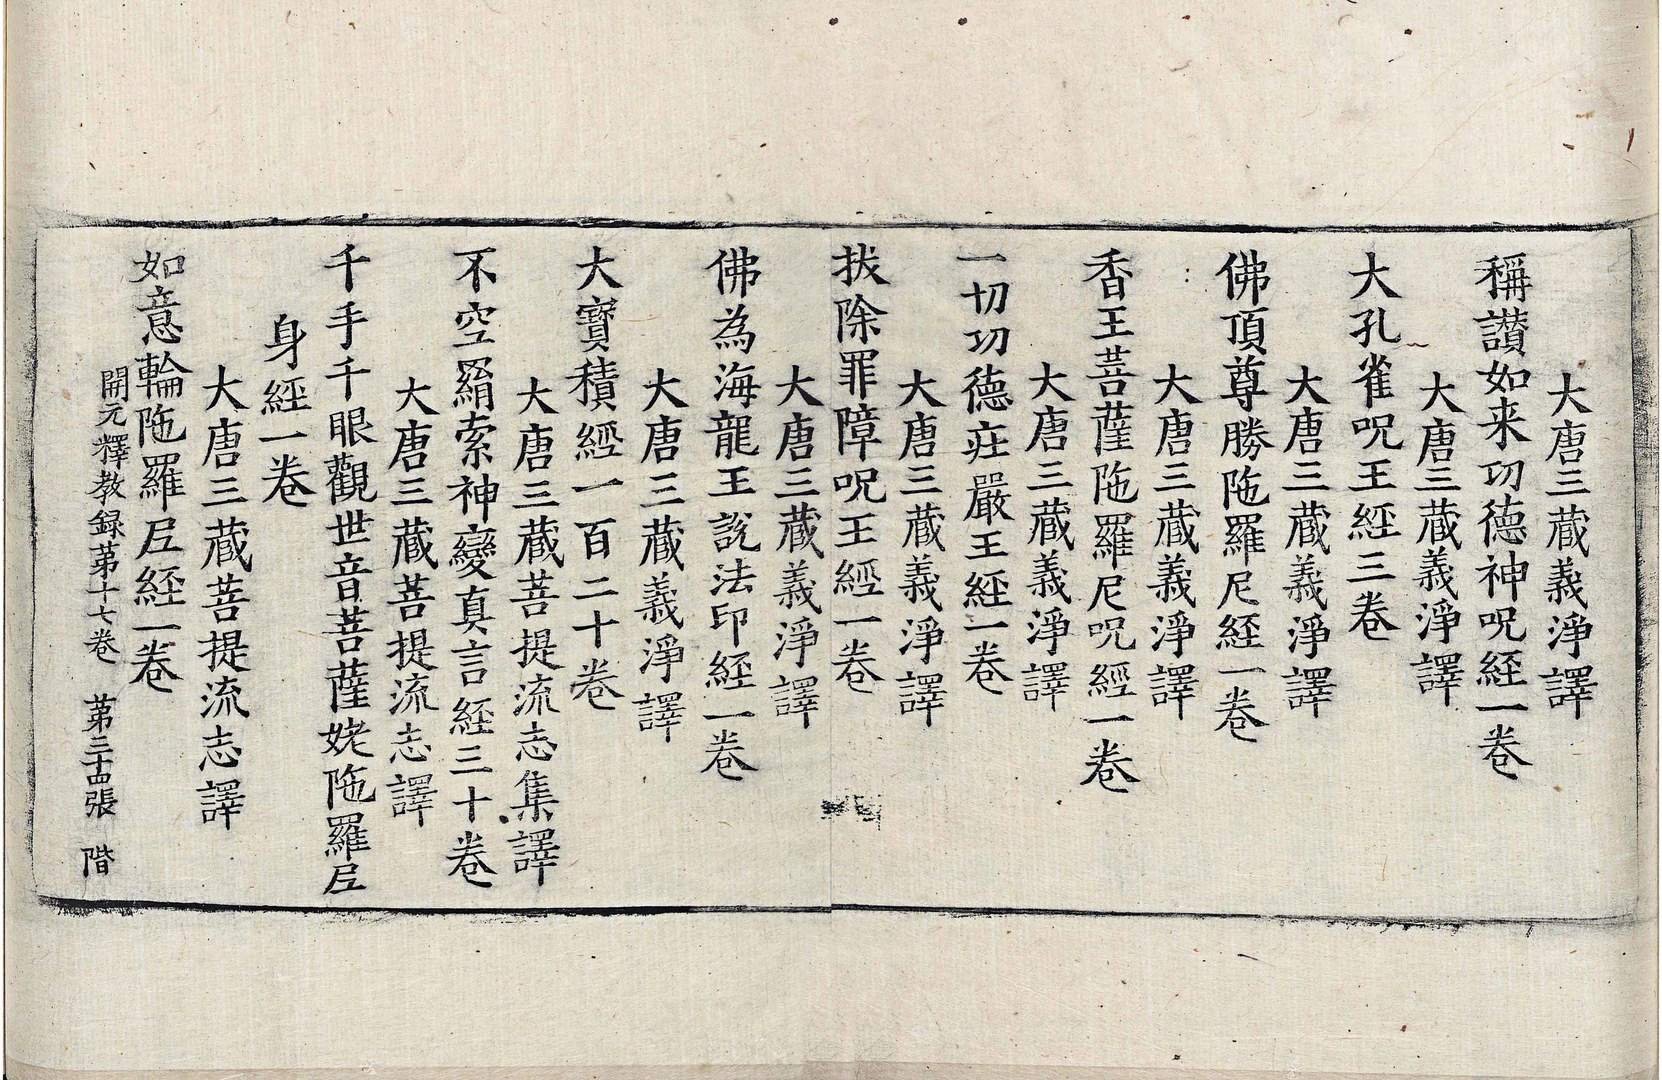 大唐三藏義淨譯
稱讃如来功德神呪經一卷
大唐三藏義淨譯
大孔雀呪王經三卷
大唐三藏義淨譯
佛頂尊勝陁羅尼經一卷
大唐三藏義淨譯
香王菩薩陁羅尼呪經一卷
大唐三藏義淨譯
一切功德莊嚴王經一卷
大唐三藏義淨譯
拔除罪障呪王經一卷
大唐三藏義淨譯
佛為海龍王說法印經一卷
大唐三藏義淨譯
大寶積經一百二十卷
大唐三藏菩提流志集譯
不空羂索神變真言經三十卷
大唐三藏菩提流志譯
千手千眼觀世音菩薩姥陁羅尼
身經一卷
大唐三藏菩提流志譯
如意輪陁羅尼經一卷
開元釋教録第十七卷 第三十四張 階